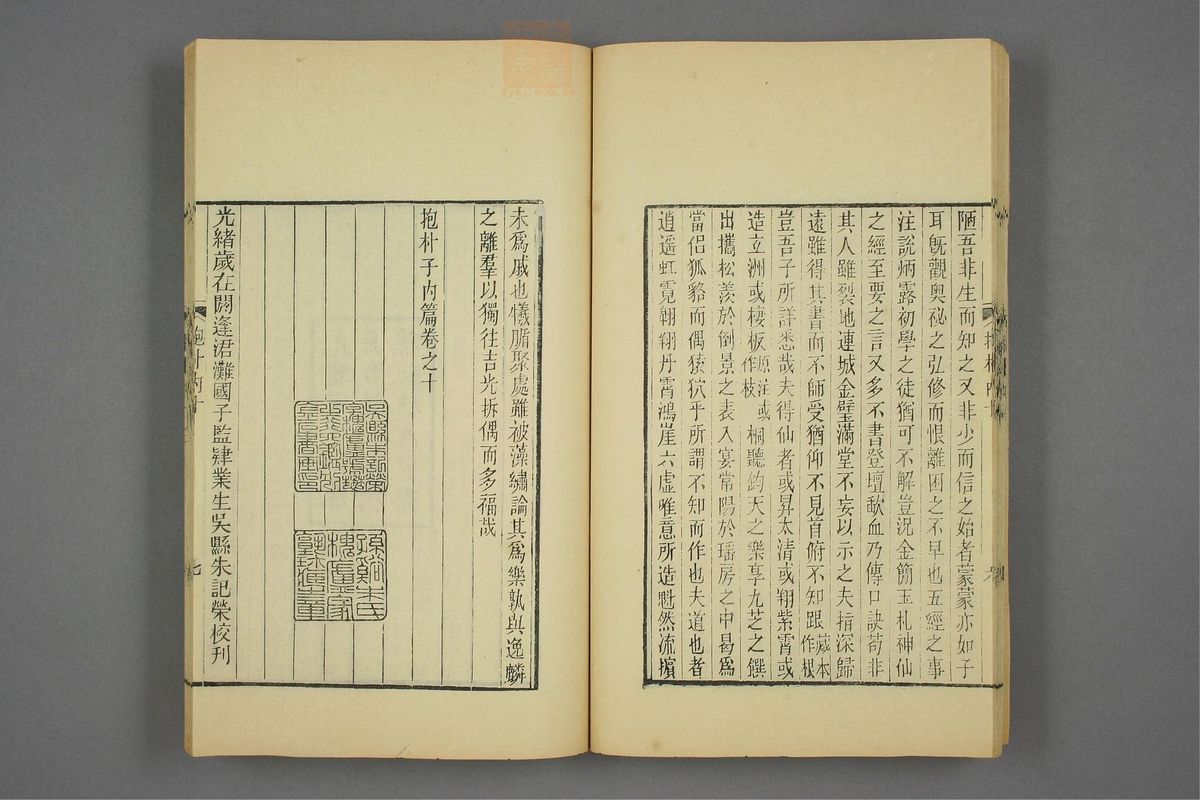 陋吾非生而知之又非少而信之始者蒙蒙亦如子
耳既觀奥祕之弘修而恨離困之不早也五經之事
注說炳露初學之徒猶可不解豈況金簡玉札神仙
之經至要之言又多不書登壇歃血乃傳口訣苟非
其人雖裂地連城金璧滿堂不妄以示之夫指深歸
遠雖得其書而不師受猶仰不見首俯不知跟藏本作根
豈吾子所詳悉哉夫得仙者或昇太清或翔紫霄或
造立洲或棲板原注或作枝桐聽鈞天之樂享九芝之饌
出攜松羨於倒景之表入宴常陽於瑶房之中曷爲
當侣狐貉而偶猿狖乎所謂不知而作也夫道也者
逍遥虹霓翱翔丹霄鴻崖六虚唯意所造魁然流擯
未爲戚也犧腯聚處雖被藻繡論其爲樂孰與逸麟
之離羣以獨往吉光拆偶而多福哉
抱朴子內篇卷之十
吳縣朱記榮
光緒歲在閼逢涒灘國子監肄業生吳縣朱記榮校刊
抱朴內十
七